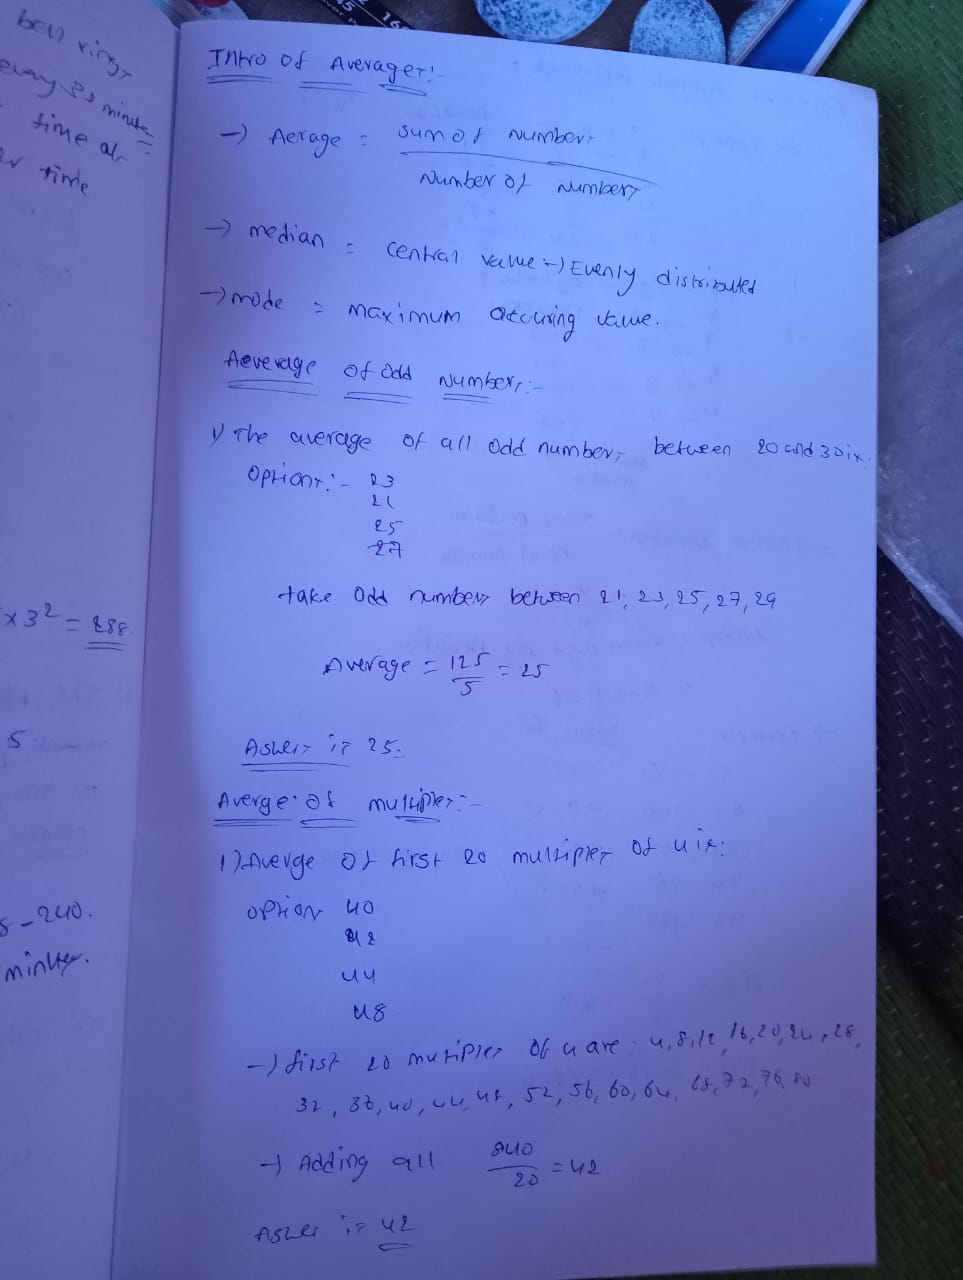 bell rings
every
minutes
time
time
x 3² = 288
5
8-240.
minutes.
Intro of Averages:-
→ Aerage = sum of numbers
Number of numbers
→ median = central value → Evenly distributed
→ mode = maximum value.
Aeverage of odd numbers:-
1) The average of all odd numbers between 20 and 30 is.
Options:- 23
21
25
27
take odd numbers between 21, 23, 25, 27, 29
Average = 125/5 = 25
is 25.
Averge of multiples:-
1) Averge of first 20 multiples of 4 is:
option 40
42
44
48
→ first 20 mutiples of 4 are: 4, 8, 12, 16, 20, 24, 28,
32, 36, 40, 44, 48, 52, 56, 60, 64, 68, 72, 76, 80
→ Adding all 840/20 = 42
is 42